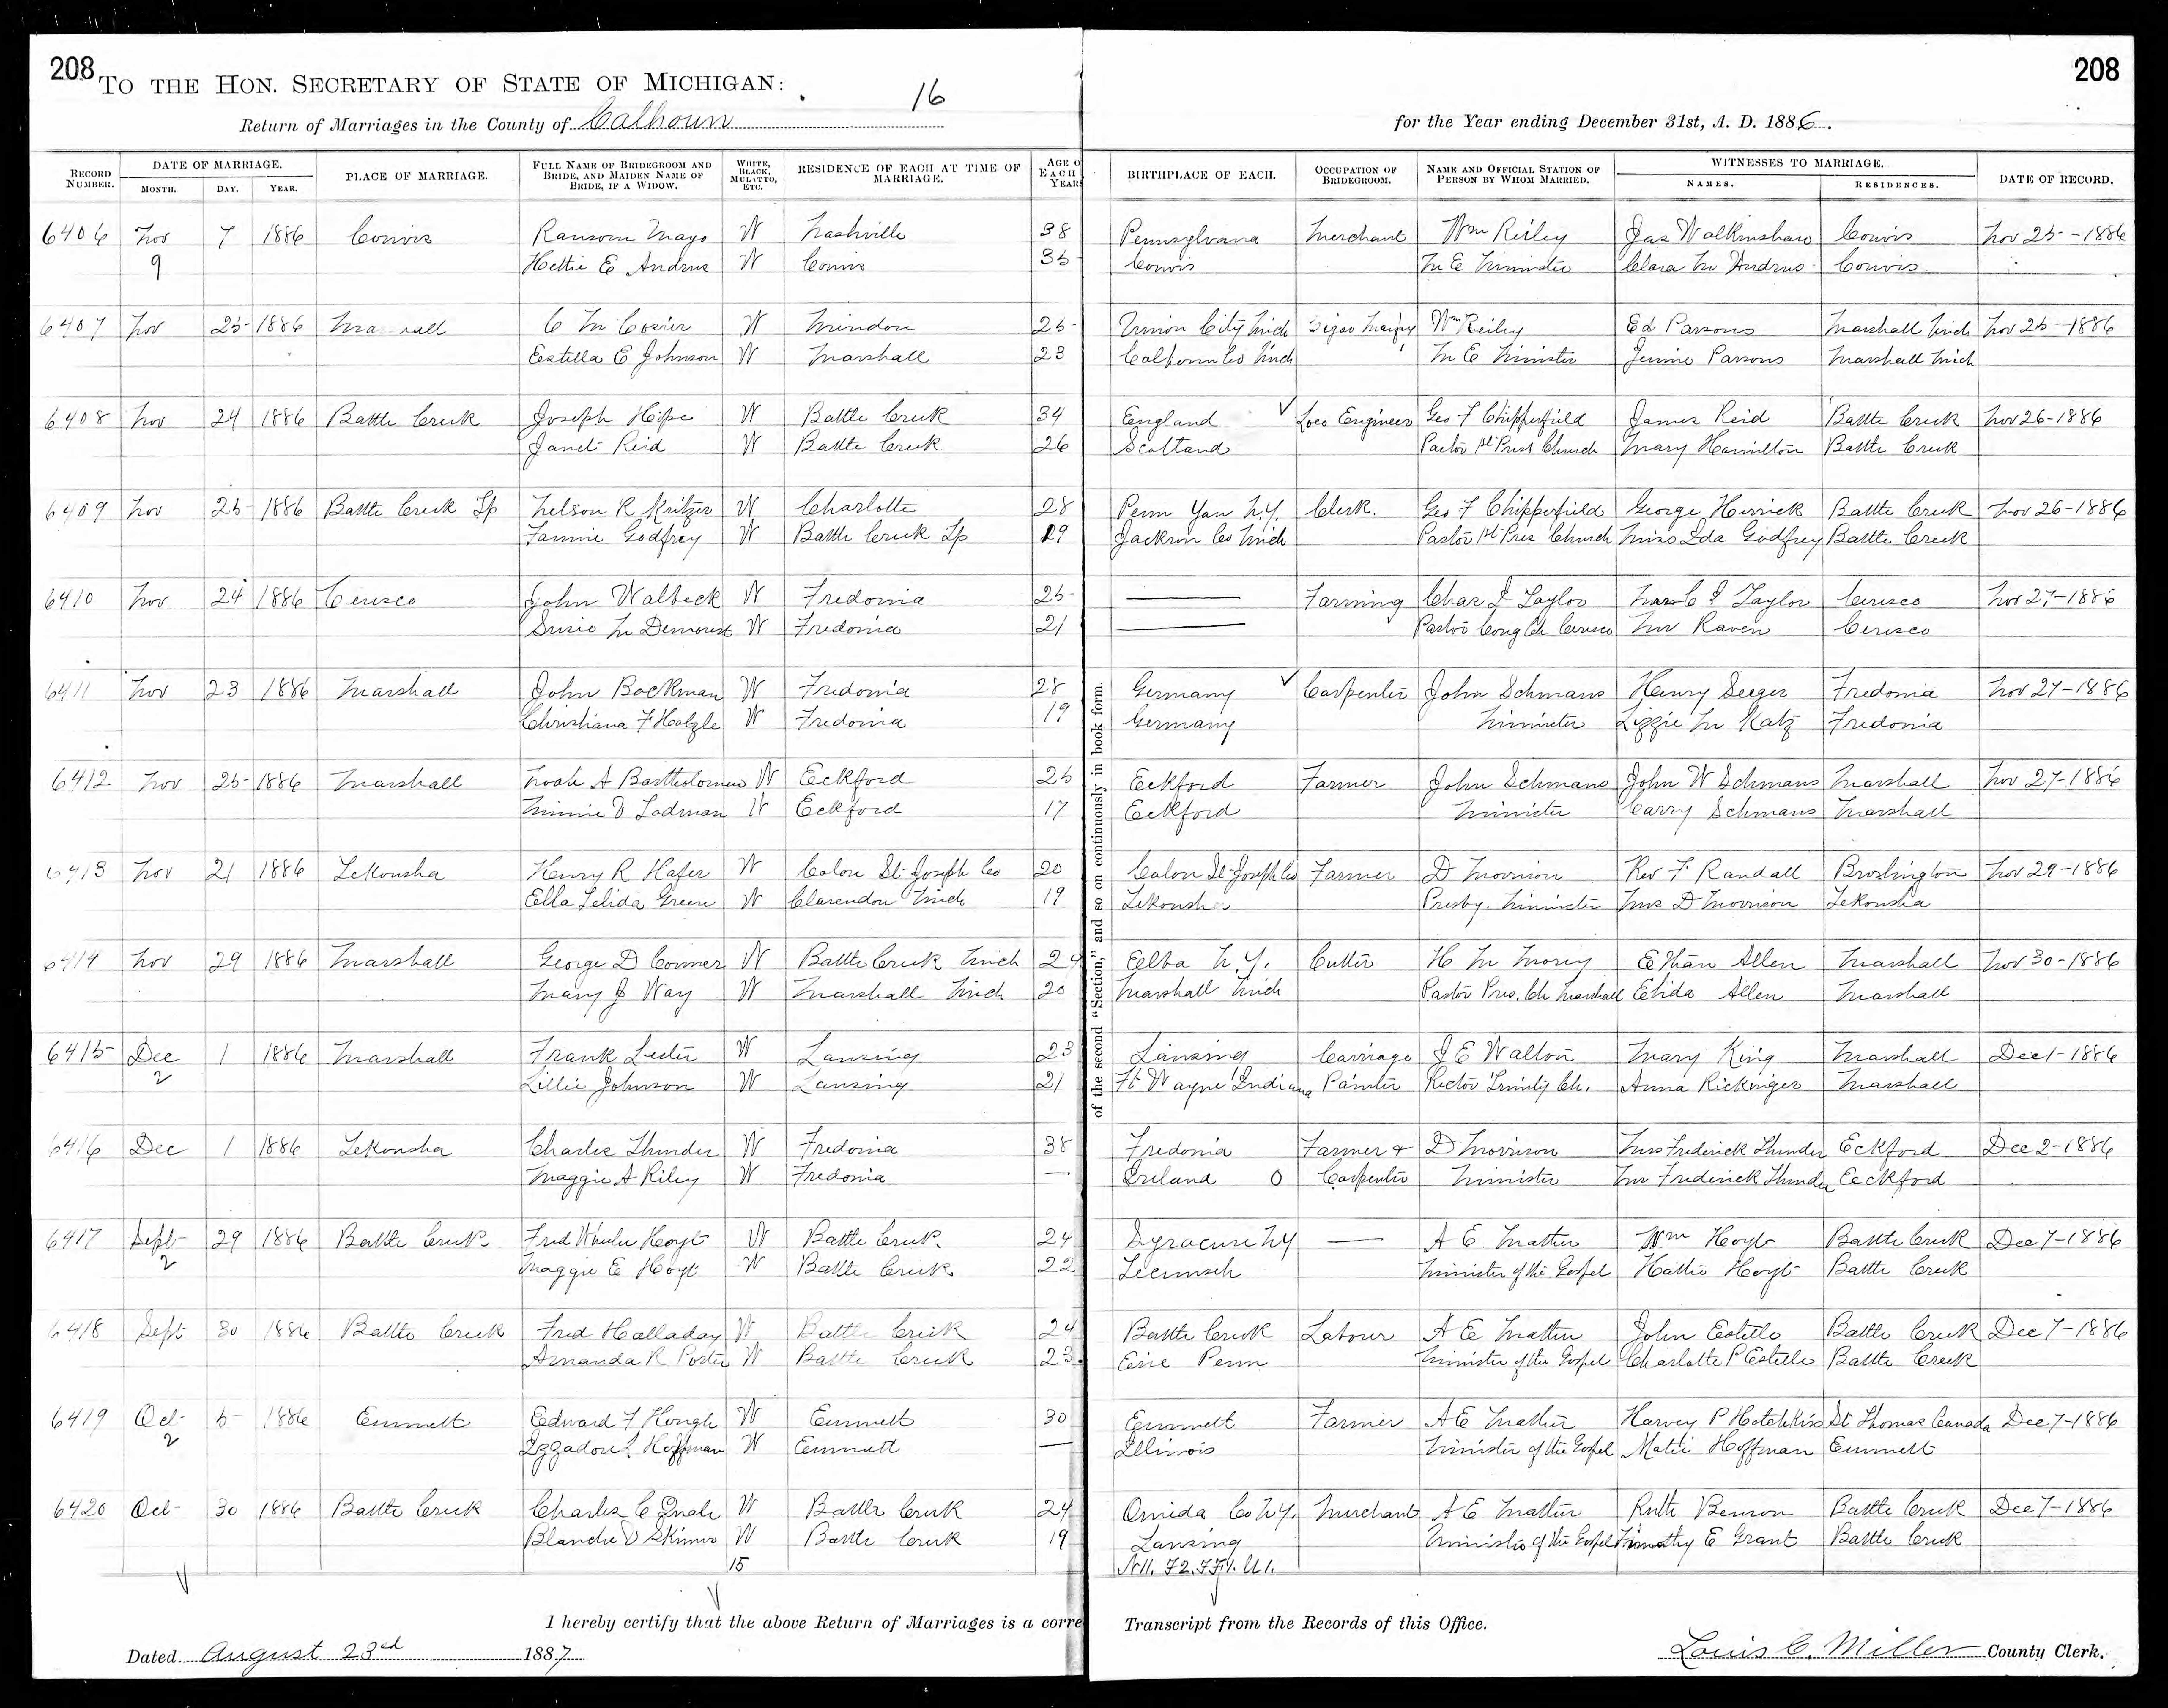 208
TO THE HON. SECRETARY OF STATE OF MICHIGAN:
16
208
Return of Marriages in the County of Calhoun
for the Year ending December 31st, A. D. 1886.
RECORD NUMBER. DATE OF MARRIAGE. MONTH. DAY. YEAR. PLACE OF MARRIAGE. FULL NAME OF BRIDEGROOM AND BRIDE, AND MAIDEN NAME OF BRIDE, IF A WIDOW. WHITE, BLACK, MULATTO, ETC. RESIDENCE OF EACH AT TIME OF MARRIAGE. AGE O EACH YEARS BIRTHPLACE OF EACH. OCCUPATION OF BRIDEGROOM. NAME AND OFFICIAL STATION OF PERSON BY WHOM MARRIED. WITNESSES TO MARRIAGE. NAMES. RESIDENCES. DATE OF RECORD.
6406 Nov 7 1886 Convis Ransom Mayo W Nashville 38 Pennsylvania Merchant Wm Reiley Jas Walkinshaw Convis Nov 25-1886
9 Hettie E Andrus W Convis 35 Convis M E Minister Clara M Andrus Convis
6407 Nov 25 1886 C M Cosier W Mendon 25 Union City Mich Wm Reiley Ed Parsons Marshall Mich Nov 25-1886
Estella E Johnson W Marshall 23 Calhoun Co Mich M E Minister Jennie Parsons Marshall Mich
6408 Nov 24 1886 Battle Creek Joseph Hipe W Battle Creek 34 England Loco Engineer Geo F Chipperfield James Reid Battle Creek Nov 26-1886
Janet Reid W Battle Creek 26 Scotland Pastor 1st Pres Church Mary Hamilton Battle Creek
6409 Nov 25 1886 Battle Creek Tp Nelson R Kritzer W Charlotte 28 Penn Yan N.Y. Clerk. Geo F Chipperfield George Herrick Battle Creek Nov 26-1886
Fannie Godfrey W Battle Creek Tp 29 Jackson Co Mich Pastor 1st Pres Church Miss Ida Godfrey Battle Creek
6410 Nov 24 1886 Ceresco John Walbeck W Fredonia 25 Farming Chas I Taylor Mrs C I Taylor Ceresco Nov 27-1886
Susie M Demorest W Fredonia 21 Pastor Cong Ch Ceresco Mrs Raven Ceresco
6411 Nov 23 1886 Marshall John Backman W Fredonia 28 Germany Carpenter John Schmans Henry Seeger Fredonia Nov 27-1886
Christiana F Holzle W Fredonia 19 Germany Minister Lizzie M Katz Fredonia
6412 Nov 25 1886 Marshall Noah A Bartholomew W Eckford 25 Eckford Farmer John Schmans John W Schmans Marshall Nov 27-1886
Minnie D Ladman W Eckford 17 Eckford Minister Carry Schmans Marshall
6413 Nov 21 1886 Tekonsha Henry R Hafer W Colon St Joseph Co 20 Colon St Joseph Co Farmer D Morrison Rev F Randall Nov 29-1886
Ella Lelida Green W Clarendon Mich 19 Tekonsha Presby. Minister Mrs D Morrison Tekonsha
6414 Nov 29 1886 Marshall George D Conner W Battle Creek Mich 29 Elba N.Y. Cutter H M Morey Ethan Allen Marshall Nov 30-1886
Mary J Way W Marshall Mich 20 Marshall Mich Pastor Pres. Ch Marshall Elida Allen Marshall
6415 Dec 1 1886 Marshall Frank Lester W Lansing 23 Lansing Carriage J E Walton Mary King Marshall Dec 1-1886
2 Lillie Johnson W Lansing 21 Ft Wayne Indiana Painter Rector Trinity Ch. Anna Rickinger Marshall
6416 Dec 1 1886 Tekonsha Charles Thunder W Fredonia 38 Fredonia Farmer & D Morrison Mrs Frederick Thunder Eckford Dec 2-1886
Maggie A Riley W Fredonia — Ireland O Carpenter Minister Mr Frederick Thunder Eckford
6417 Sept 29 1886 Battle Creek Fred Wheeler Hoyt W Battle Creek 24 Syracuse NY — A E Mather Wm Hoyt Battle Creek Dec 7-1886
2 Maggie E Hoyt W Battle Creek 22 Tecumseh Minister of the Gospel Hattie Hoyt Battle Creek
6418 Sept 30 1886 Battle Creek Fred Halladay W Battle Creek 24 Battle Creek Labour A E Mather John Estelle Battle Creek Dec 7-1886
Amanda R Porter W Battle Creek 23 Erie Penn Minister of the Gospel Charlotte P Estelle Battle Creek
6419 Oct 5 1886 Emmett Edward F Hough W Emmett 30 Emmett Farmer A E Mather Harvey P Hotchkiss St Thomas Canada Dec 7-1886
2 Hoffman W Emmett — Illinois Minister of the Gospel Matie Hoffman Emmett
6420 Oct 30 1886 Battle Creek Charles C W Battle Creek 24 Oneida Co N.Y. Merchant A E Mather Ruth Benson Battle Creek Dec 7-1886
Blanche D Skinner W Battle Creek 19 Lansing Minister of the Gospel Timothy E Grant Battle Creek
15
of the second "Section," and so on continuously in book form.
I hereby certify that the above Return of Marriages is a corre Transcript from the Records of this Office.
Dated August 23rd 1887
Louis C. Miller County Clerk.